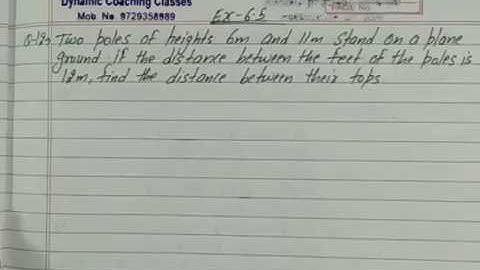 Dynamic Coaching Classes
Mob. No. 9729358989
Ex-6.5
Q-12> Two poles of heights 6m and 11m stand on a plane
ground if the distance between the feet of the poles is
12m, find the distance between their tops